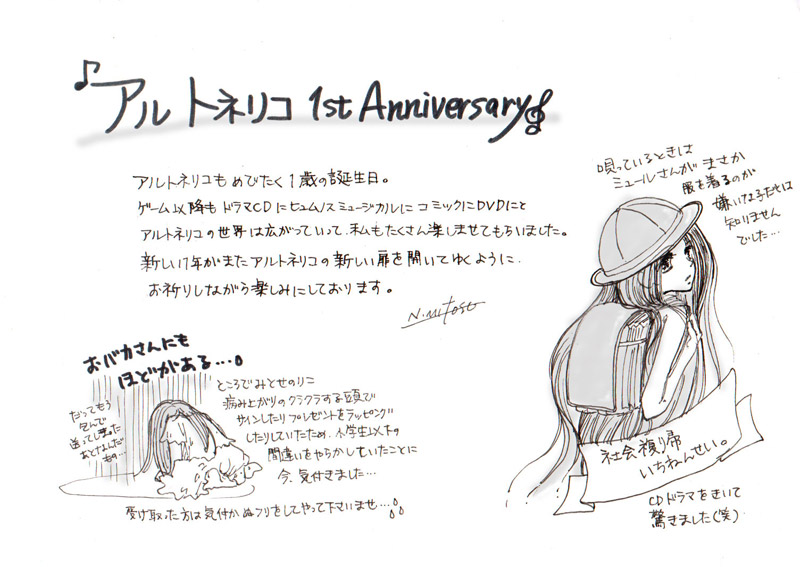 アルトネリコ 1st Anniversary
アルトネリコもめでたく1歳の誕生日。
ゲーム以降もドラマCDにヒュムノスミュージカルにコミックにDVDにと
アルトネリコの世界は広がっていって、私もたくさん楽しませてもらいました。
新しい1年がまたアルトネリコの新しい扉を開いてゆくように、
お祈りしながら楽しみにしております。
N.mitose
唄っているときは
ミュールさんがまさか
服を着るのが
嫌いな子だとは
知りません
でした…
おバカさんにも
ほどがある…。
だってもう
包んで
送ってしまった
あとなんだ
もの…
ところでみとせのりこ
病み上がりのクラクラする頭で
サインしたりプレゼントをラッピング
したりしていたため、小学生以下の
間違いをやらかしていたことに
今、気付きました…
受け取った方は気付かぬフリをしてやって下さいませ…
社会復帰
いちねんせい。
CDドラマをきいて
驚きました(笑)